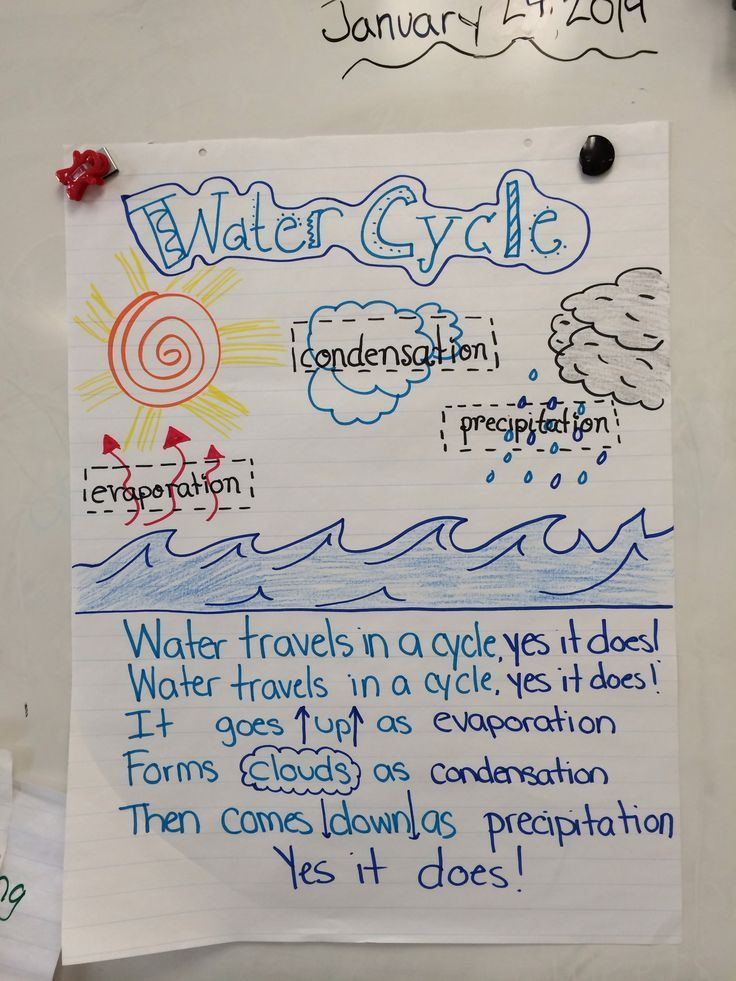 January 24, 2019
Water Cycle
condensation
precipitation
evaporation
Water travels in a cycle, yes it does!
Water travels in a cycle, yes it does!
It goes ↑up↑ as evaporation
Forms clouds as condensation
Then comes ↓down↓ as precipitation
Yes it does!
ng